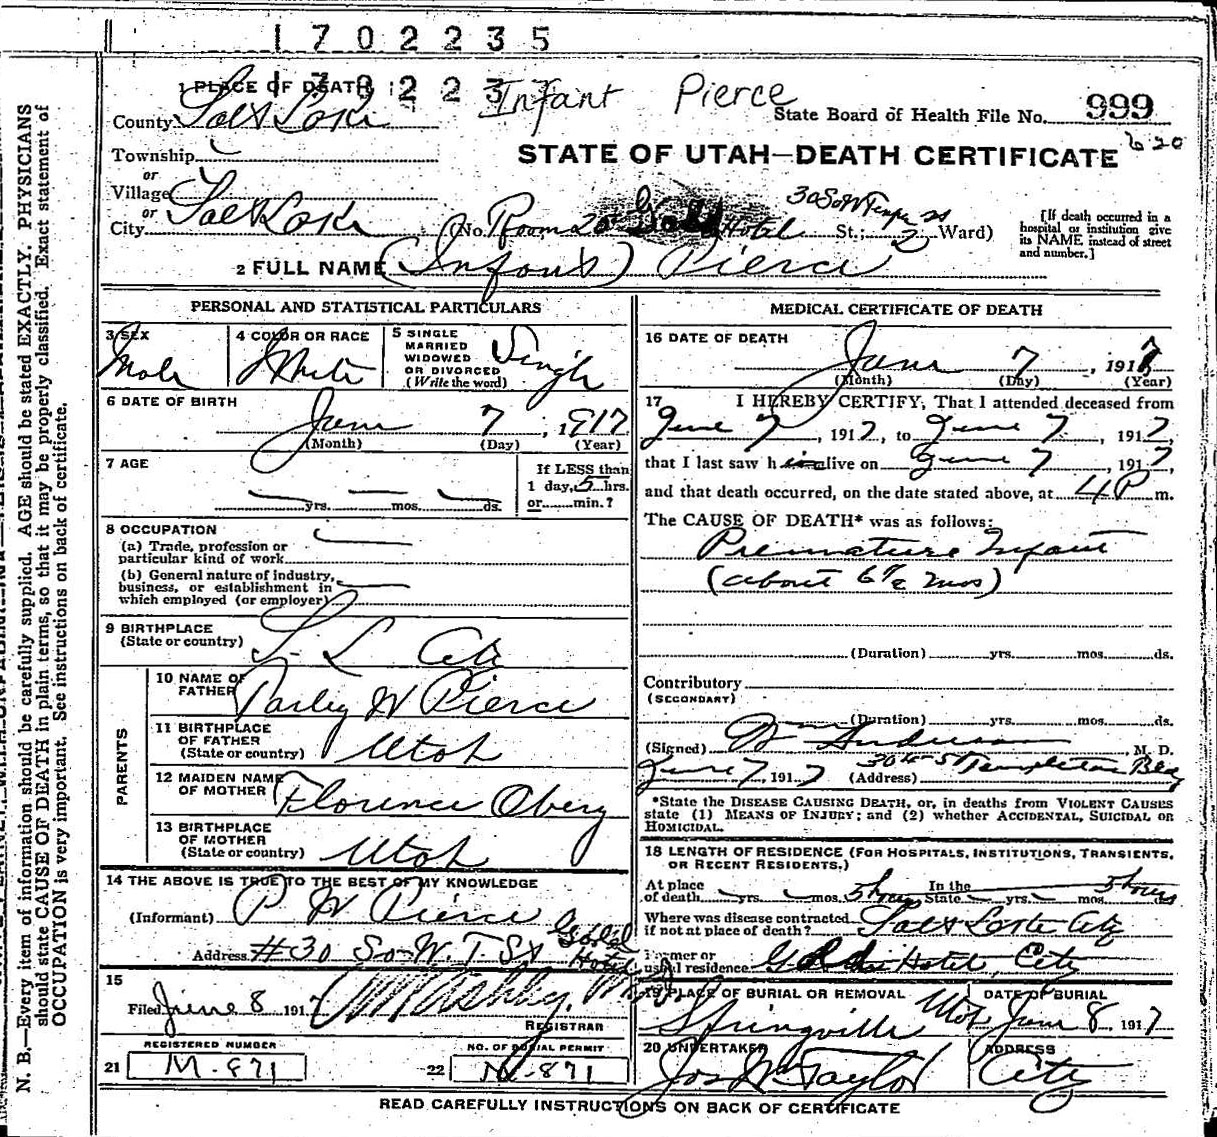 1702235
1 PLACE OF DEATH
Infant Pierce
County Salt Lake
State Board of Health File No. 999
Township
620
or
STATE OF UTAH—DEATH CERTIFICATE
Village
or
City Salt Lake (No. Room 20 Hotel 30 So W Temple St St.; 2 Ward)
[If death occurred in a hospital or institution give its NAME instead of street and number.]
2 FULL NAME (Infant) Pierce
PERSONAL AND STATISTICAL PARTICULARS
3 SEX Male
4 COLOR OR RACE White
5 SINGLE MARRIED WIDOWED OR DIVORCED (Write the word) Single
6 DATE OF BIRTH
June 7, 1917
(Month) (Day) (Year)
7 AGE
If LESS than
1 day, 5 hrs.
yrs. mos. ds. or min.?
8 OCCUPATION
(a) Trade, profession or
particular kind of work
(b) General nature of industry,
business, or establishment in
which employed (or employer)
9 BIRTHPLACE
(State or country) S. L. City
PARENTS
10 NAME OF FATHER Parley W Pierce
11 BIRTHPLACE OF FATHER (State or country) Utah
12 MAIDEN NAME OF MOTHER Florence Oberg
13 BIRTHPLACE OF MOTHER (State or country) Utah
14 THE ABOVE IS TRUE TO THE BEST OF MY KNOWLEDGE
(Informant) P W Pierce
Address #30 So. W. T. St Hotel
15
Filed June 8 1917
REGISTRAR
REGISTERED NUMBER
NO. OF BURIAL PERMIT
21 M-871 22 M-871
MEDICAL CERTIFICATE OF DEATH
16 DATE OF DEATH
June 7, 1917
(Month) (Day) (Year)
17 I HEREBY CERTIFY, That I attended deceased from
June 7, 1917, to June 7, 1917,
that I last saw him alive on June 7, 1917,
and that death occurred, on the date stated above, at 4 P m.
The CAUSE OF DEATH* was as follows:
Premature Infant
(about 6 1/2 mos)
(Duration) yrs. mos. ds.
Contributory
(SECONDARY)
(Duration) yrs. mos. ds.
(Signed) Wm Anderson, M. D.
June 7, 1917 (Address) Templeton Bldg
*State the DISEASE CAUSING DEATH, or, in deaths from VIOLENT CAUSES
state (1) MEANS OF INJURY; and (2) whether ACCIDENTAL, SUICIDAL OR
HOMICIDAL.
18 LENGTH OF RESIDENCE (FOR HOSPITALS, INSTITUTIONS, TRANSIENTS,
OR RECENT RESIDENTS.)
At place of death yrs. mos. 5 hours In the State yrs. mos. 5 hours ds
Where was disease contracted
if not at place of death? Salt Lake City
Former or
usual residence Hotel, City
19 PLACE OF BURIAL OR REMOVAL Springville Utah
DATE OF BURIAL June 8 1917
20 UNDERTAKER Jos Wm Taylor
ADDRESS City
READ CAREFULLY INSTRUCTIONS ON BACK OF CERTIFICATE
N. B.—Every item of information should be carefully supplied. AGE should be stated EXACTLY. PHYSICIANS
should state CAUSE OF DEATH in plain terms, so that it may be properly classified. Exact statement of
OCCUPATION is very important. See instructions on back of certificate.